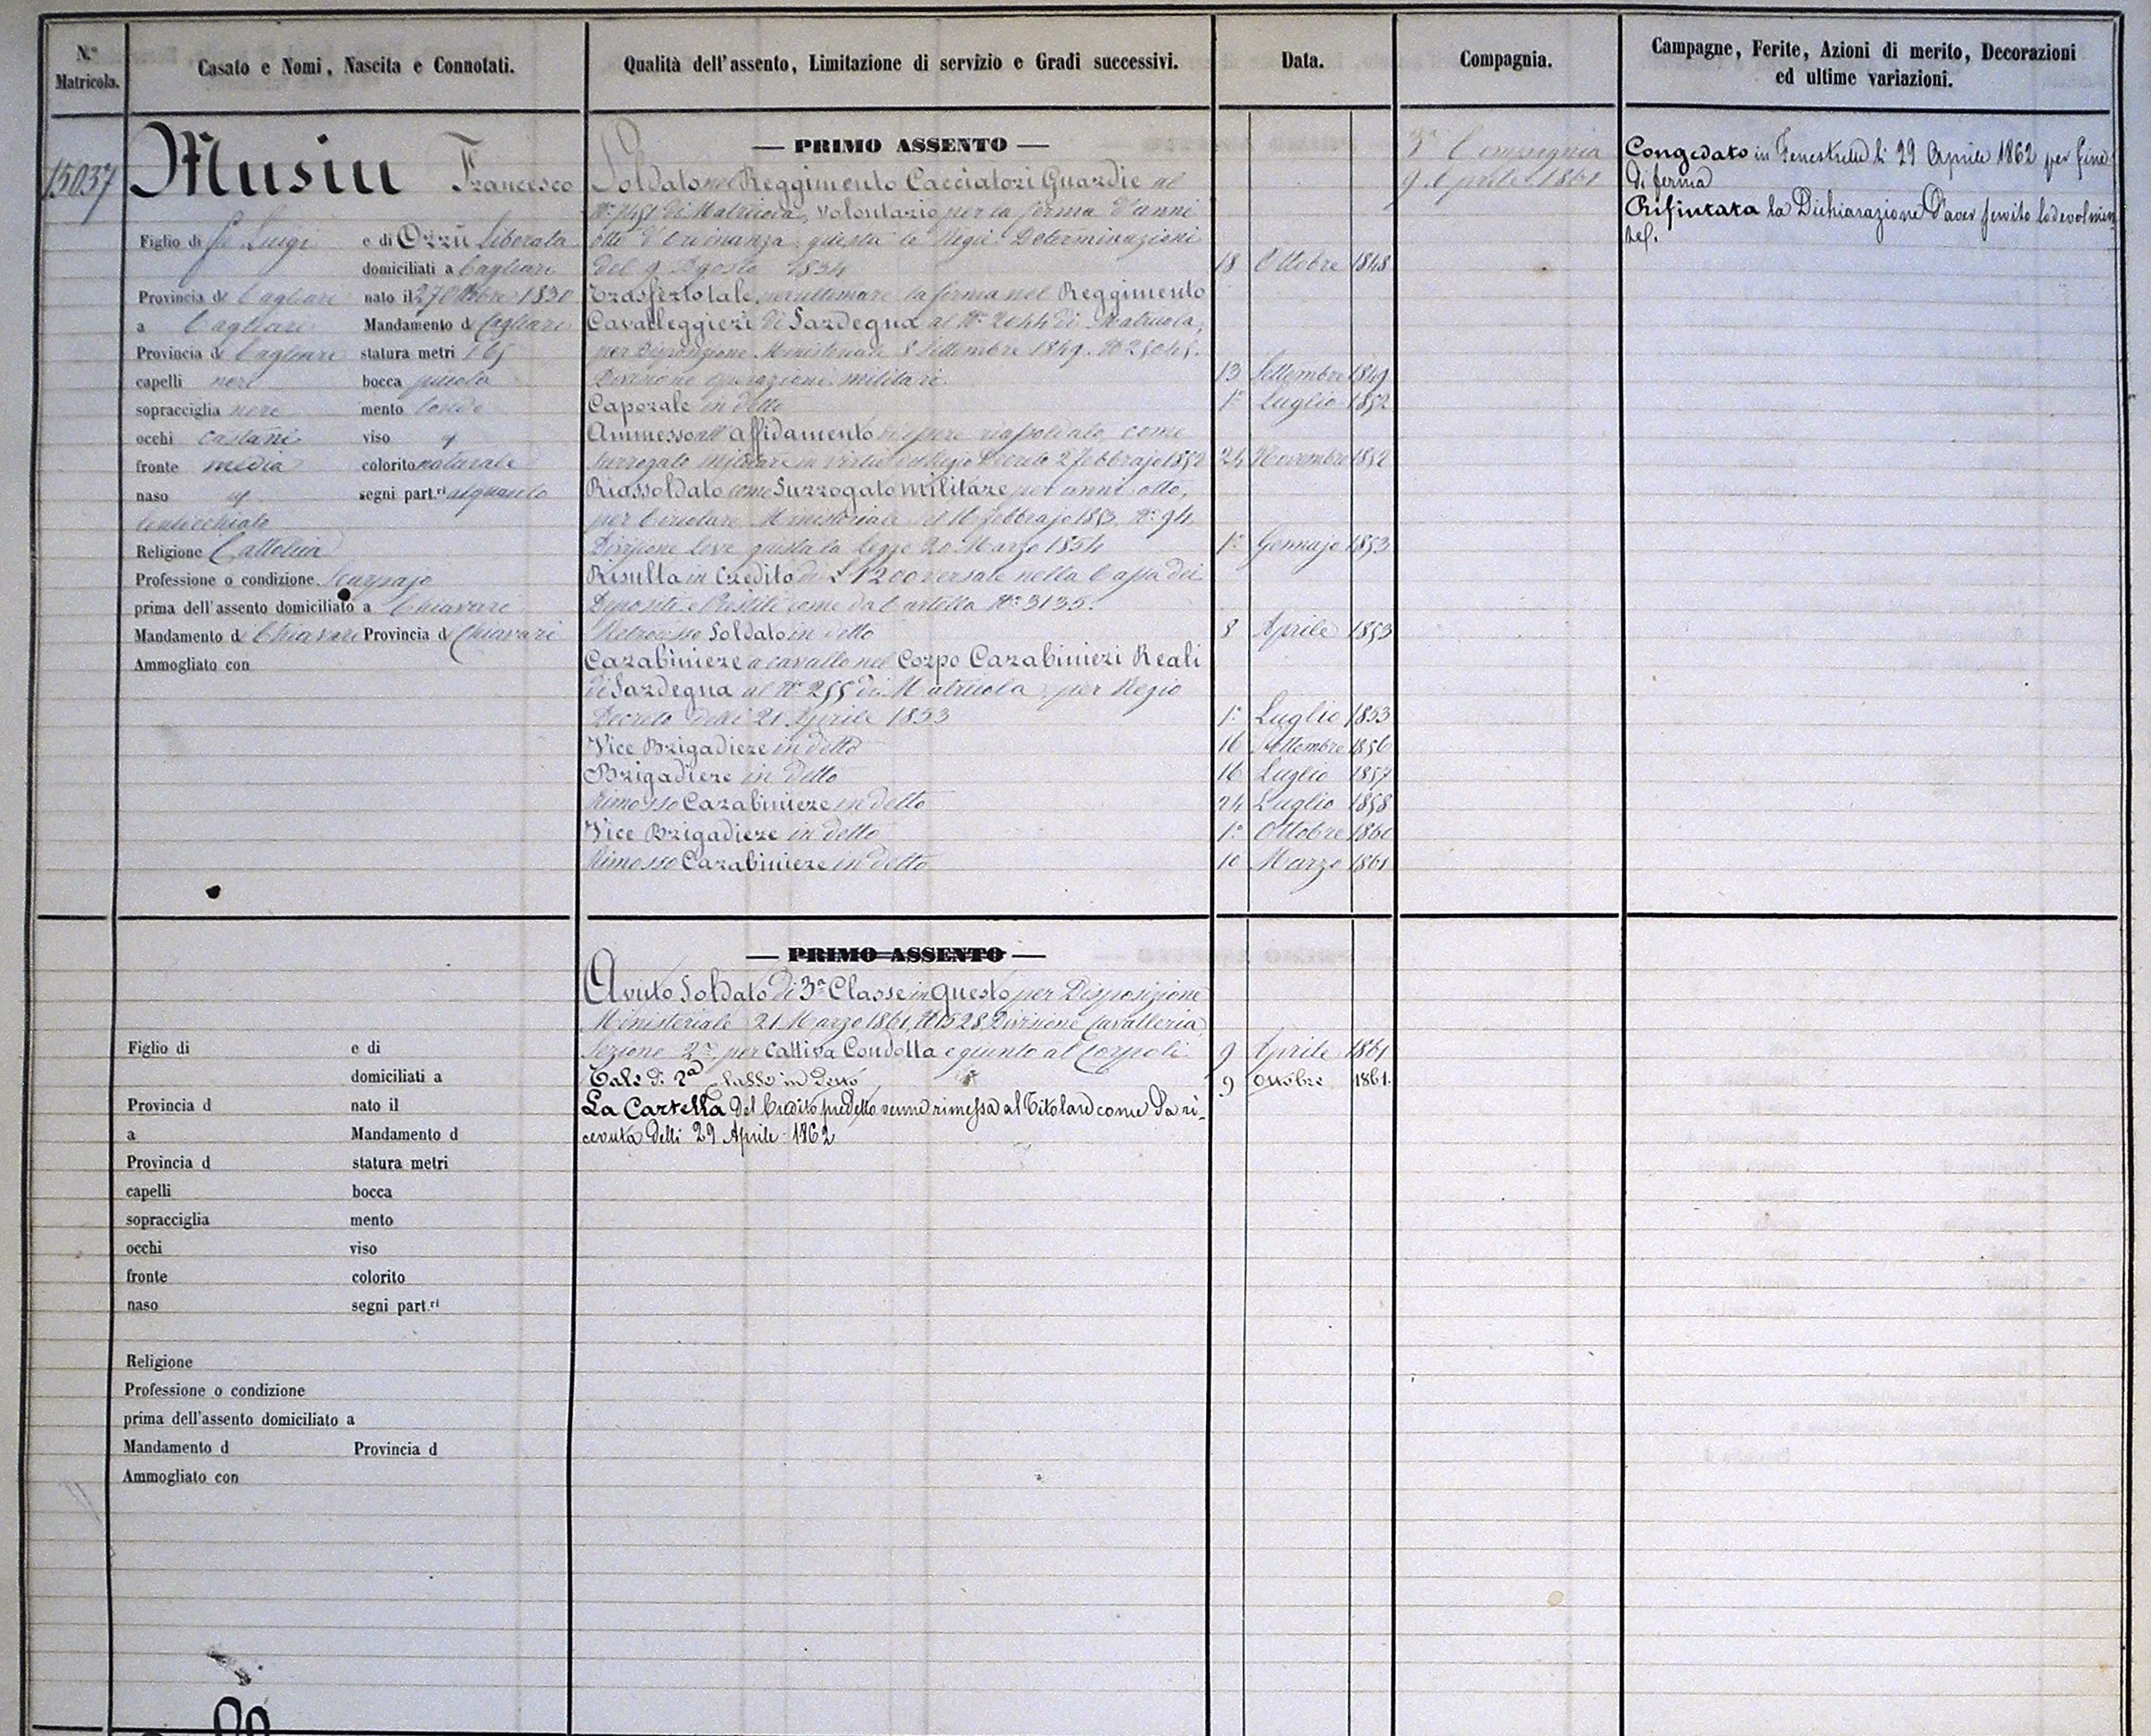 N.º Matricola.
Casato e Nomi, Nascita e Connotati.
Qualità dell'assento, Limitazione di servizio e Gradi successivi.
Data.
Compagnia.
Campagne, Ferite, Azioni di merito, Decorazioni
ed ultime variazioni.
15037
Musiu Francesco
Figlio di fu Luigi e di Ozzú Liberata
domiciliati a Cagliari
Provincia di Cagliari nato il 27 Ottobre 1830
a Cagliari Mandamento di Cagliari
Provincia di Cagliari statura metri 1 65
capelli neri bocca piccola
sopracciglia nere mento tondo
occhi castani viso
fronte media colorito naturale
naso segni part.ri alquanto
lenticchiato
Religione Cattolica
Professione o condizione Scarpajo
prima dell'assento domiciliato a Chiavari
Mandamento di Chiavari Provincia di Chiavari
Ammogliato con
— PRIMO ASSENTO —
Soldato nel Reggimento Cacciatori Guardie al
Nº 7451 di Matricola, volontario per la ferma d'anni
otto d'ordinanza giusta le Regie Determinazioni
del 9 Agosto 1834 18 Ottobre 1848
Trasferto tale, per ultimare la ferma nel Reggimento
Cavalleggieri di Sardegna al Nº 2044 di Matricola,
per Disposizione Ministeriale 8 Settembre 1849. Nº 25045.
Divisione operazioni militari. 13 Settembre 1849
Caporale in detto 1º Luglio 1852
Ammesso all'affidamento di essere riassoldato, come
Surrogato militare in virtù del Regio Decreto 27 febbrajo 1852 24 Novembre 1852
Riassoldato come Surrogato Militare per anni otto,
per Circolare Ministeriale del 16 febbrajo 1853 Nº 94
Divisione Leve giusta la legge 20 Marzo 1854 1º Gennajo 1853
Risulta in Credito di £ 1200 versate nella Cassa dei
Depositi e Prestiti come da Cartella Nº 3135.
Retrocesso Soldato in detto 8 Aprile 1853
Carabiniere a cavallo nel Corpo Carabinieri Reali
di Sardegna al Nº 255 di Matricola, per Regio
Decreto delli 21 Aprile 1853 1º Luglio 1853
Vice Brigadiere in detto 16 Settembre 1856
Brigadiere in detto 16 Luglio 1857
Rimosso Carabiniere in detto 24 Luglio 1858
Vice Brigadiere in detto 1º Ottobre 1860
Rimosso Carabiniere in detto 10 Marzo 1861
3ª Compagnia
9 Aprile 1861
Congedato in Fenestrelle li 29 Aprile 1862 per fine
di ferma
Rifiutata la Dichiarazione d'aver servito lodevolmen
te.
— PRIMO ASSENTO —
Avuto Soldato di 3ª Classe in questo per Disposizione
Ministeriale 21 Marzo 1861, Nº 1528, Divisione Cavalleria
Sezione 2ª, per Cattiva Condotta e giunto al Corpo li 9 Aprile 1861
Tale di 2ª Classe in detto 9 Ottobre 1861.
La Cartella del Credito predetto venne rimessa al Titolare come da ri-
cevuta delli 29 Aprile 1862
Figlio di e di
domiciliati a
Provincia d nato il
a Mandamento d
Provincia d statura metri
capelli bocca
sopracciglia mento
occhi viso
fronte colorito
naso segni part.ri
Religione
Professione o condizione
prima dell'assento domiciliato a
Mandamento d Provincia d
Ammogliato con